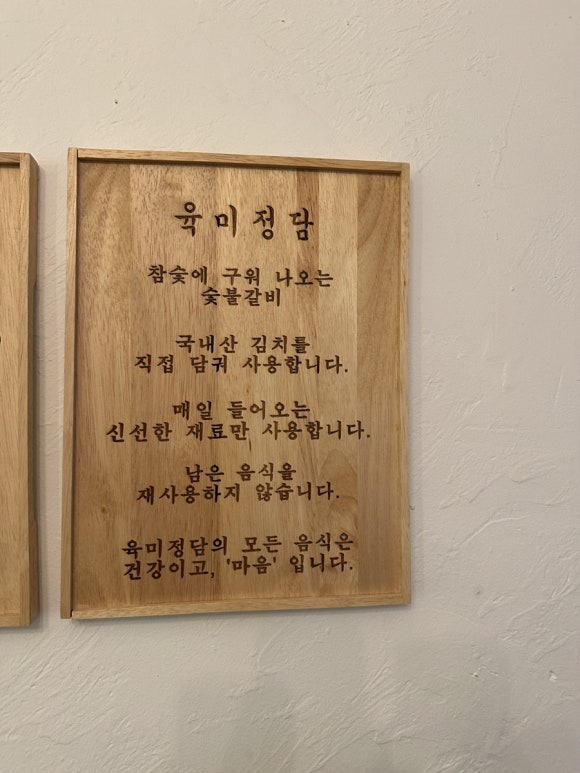 육미정담
참숯에 구워 나오는
숯불갈비
국내산 김치를
직접 담궈 사용합니다.
매일 들어오는
신선한 재료만 사용합니다.
남은 음식을
재사용하지 않습니다.
육미정담의 모든 음식은
건강이고, '마음' 입니다.